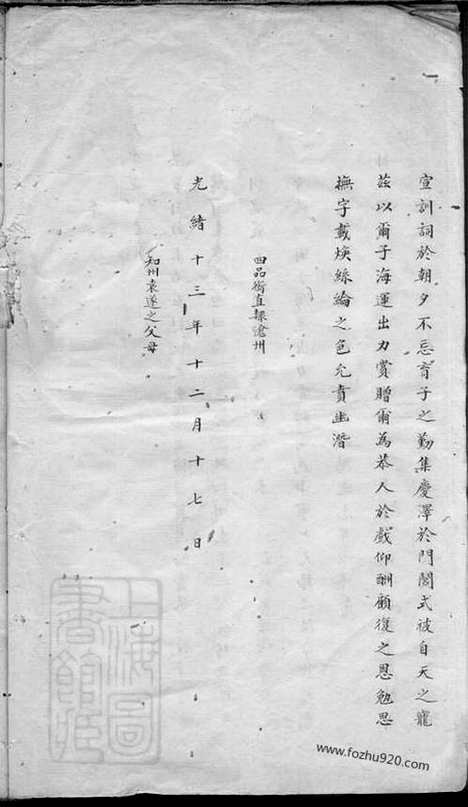 宣訓詞於朝夕不忘育子之勤集慶澤於門閭式被自天之寵
茲以爾子海運出力賞贈爾為恭人於戲仰酬顧復之恩勉思
撫字載煥絲綸之色允賁幽潛
四品銜直隸滄州
光緒十三年十二月十七日
知州袁遂之父母
上海圖書館藏
www.fozhu920.com